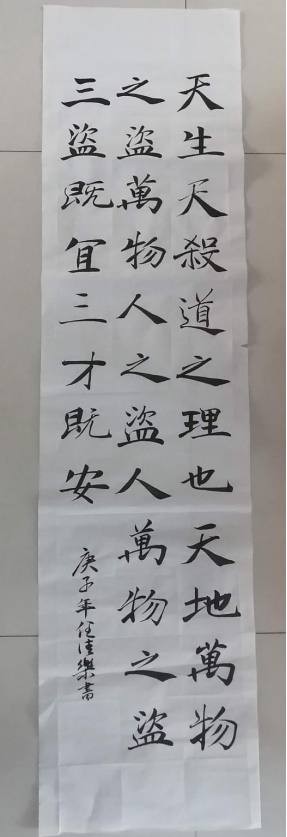 天生天殺道之理也天地萬物
之盜萬物人之盜人萬物之盜
三盜既宜三才既安
庚子年任佳樂書